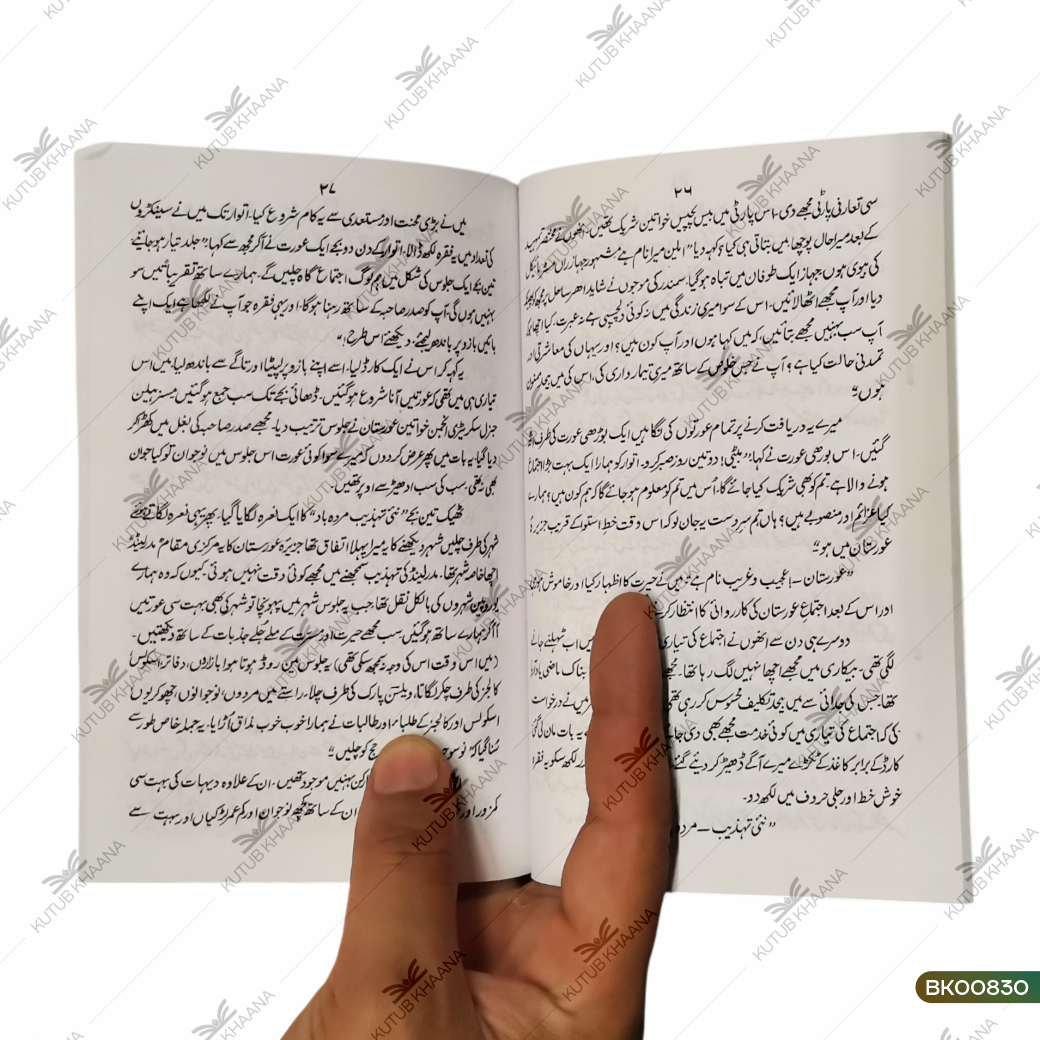 ۲۶
سی تعارفی پارٹی مجھے دی۔ اس پارٹی میں بیس پچیس خواتین شریک تھیں۔ انھوں نے مختصر تمہید
کے بعد میرا حال پوچھا۔ میں بتاتی ہی کیا؟ کہہ دیا "ایلین میرا نام ہے مشہور جہاز راں
کی بیوی ہوں۔ جہاز ایک طوفان میں تباہ ہو گیا۔ سمندر کی موجوں نے شاید ادھر ساحل پر
دیا اور آپ مجھے اٹھا لائیں۔ اس کے سوا میری زندگی میں نہ کوئی دلچسپی ہے نہ عبرت۔ کیا اچھا ہو
آپ سب بہنیں مجھے بتائیں کہ میں کہاں ہوں اور آپ کون ہیں؟ اور یہاں کی معاشرتی اور
تمدنی حالت کیا ہے؟ آپ نے جس خلوص کے ساتھ میری تیمارداری کی، اس کی میں بیحد ممنون
ہوں"
میرے یہ دریافت کرنے پر تمام عورتوں کی نگاہیں ایک بوڑھی عورت کی طرف اٹھ
گئیں۔ اس بوڑھی عورت نے کہا: "بیٹی! دو تین روز صبر کرو۔ اتوار کو ہمارا ایک بہت بڑا اجتماع
ہونے والا ہے۔ تم کو بھی شریک کیا جائے گا۔ اُس میں تم کو معلوم ہو جائے گا کہ ہم کون ہیں؟ ہمارے
کیا عزائم اور منصوبے ہیں؟ ہاں تم سرِدست یہ جان لو کہ اس وقت خطِ استوا کے قریب جزیرۂ
عورستان میں ہو"
"عورستان — عجیب و غریب نام ہے" میں نے حیرت کا اظہار کیا اور خاموش ہو گئی
اور اس کے بعد اجتماعِ عورستان کی کارروائی کا انتظار کرنے
دوسرے ہی دن سے انھوں نے اجتماع کی تیاری میں اب ٹہلنے جانے
لگی تھی۔ بیکاری میں مجھے اچھا نہیں لگ رہا تھا۔ مجھے ناک ماضی یاد آ رہا
تھا۔ جس کی جدائی سے میں بڑی تکلیف محسوس کر رہی تھی میں نے درخواست
کی کہ اجتماع کی تیاری میں کوئی خدمت مجھے بھی دی جائے یہ بات مان لی گئی
کارڈ کے برابر کاغذ کے ٹکڑے میرے آگے ڈھیر کر دیئے گئے لکھ سکو یہ فقرہ
خوش خط اور جلی حروف میں لکھ دو۔
"نئی تہذیب — مردہ
۲۷
میں نے بڑی محنت اور مستعدی سے یہ کام شروع کیا۔ اتوار تک میں نے سینکڑوں
کی تعداد میں یہ فقرہ لکھ ڈالا۔ اتوار کے دن دو بجے ایک عورت نے آکر مجھ سے کہا: "جلد تیار ہو جائیے
تین بجے ایک جلوس کی شکل میں ہم لوگ اجتماع گاہ چلیں گے۔ ہمارے ساتھ تقریباً تین سو
بہنیں ہوں گی، آپ کو صدر صاحبہ کے ساتھ رہنا ہوگا، اور یہی فقرہ جو آپ نے لکھا ہے ایک اپنے
بائیں بازو پر باندھ لیجئے، دیکھئے اس طرح!"
یہ کہہ کر اس نے ایک کارڈ لیا، اسے اپنے بازو پر لپیٹا اور تاگے سے باندھ لیا۔ میں اس
تیاری ہی میں تھی کہ عورتیں آنا شروع ہو گئیں۔ ڈھائی بجے تک سب جمع ہو گئیں مسز ہیلین
جنرل سکریٹری انجمن خواتین عورستان نے جلوس ترتیب دیا۔ مجھے صدر صاحبہ کی بغل میں کھڑا کر
دیا گیا۔ یہ بات میں پھر عرض کر دوں کہ میرے سوا کوئی عورت اس جلوس میں نوجوان تو کیا جوان
بھی نہ تھی۔ سب کی سب ادھیڑ سے اوپر تھیں۔
ٹھیک تین بجے "نئی تہذیب مردہ باد" کا ایک نعرہ لگایا گیا۔ پھر یہی نعرہ لگاتے ہوئے
شہر کی طرف چلیں شہر دیکھنے کا یہ میرا پہلا اتفاق تھا جزیرۂ عورستان کا یہ مرکزی مقام مدرلینڈ
اچھا خاصہ شہر تھا۔ مدرلینڈ کی تہذیب سمجھنے میں مجھے کوئی دقت نہیں ہوئی۔ کیوں کہ وہ ہمارے
یوروپین شہروں کی بالکل نقل تھا۔ جب یہ جلوس شہر میں پہونچا تو شہر کی بھی بہت سی عورتیں
آ آ کر ہمارے ساتھ ہو گئیں۔ سب مجھے حیرت اور مسرت کے ملے جلے جذبات کے ساتھ دیکھتیں۔
(میں اس وقت اس کی وجہ نہ سمجھ سکی تھی) یہ جلوس مین روڈ ہوتا ہوا بازاروں، دفاتر، اسکولس
کالجز کی طرف چکر لگاتا، ویلسن پارک کی طرف چلا، راستے میں مردوں، نوجوانوں، چھوکریوں
اسکولس اور کالجز کے طلباء اور طالبات نے ہمارا خوب خوب مذاق اُڑایا۔ یہ جملہ خاص طور سے
سُنا گیا کہ "نو سو حج کو چلیں"
بہنیں موجود تھیں۔ ان کے علاوہ دیہات کی بہت سی
کمزور اور ان کے ساتھ کچھ نوجوان اور کم عمر لڑکیاں اور بہت سے
KUTUB KHAANA
BK00830